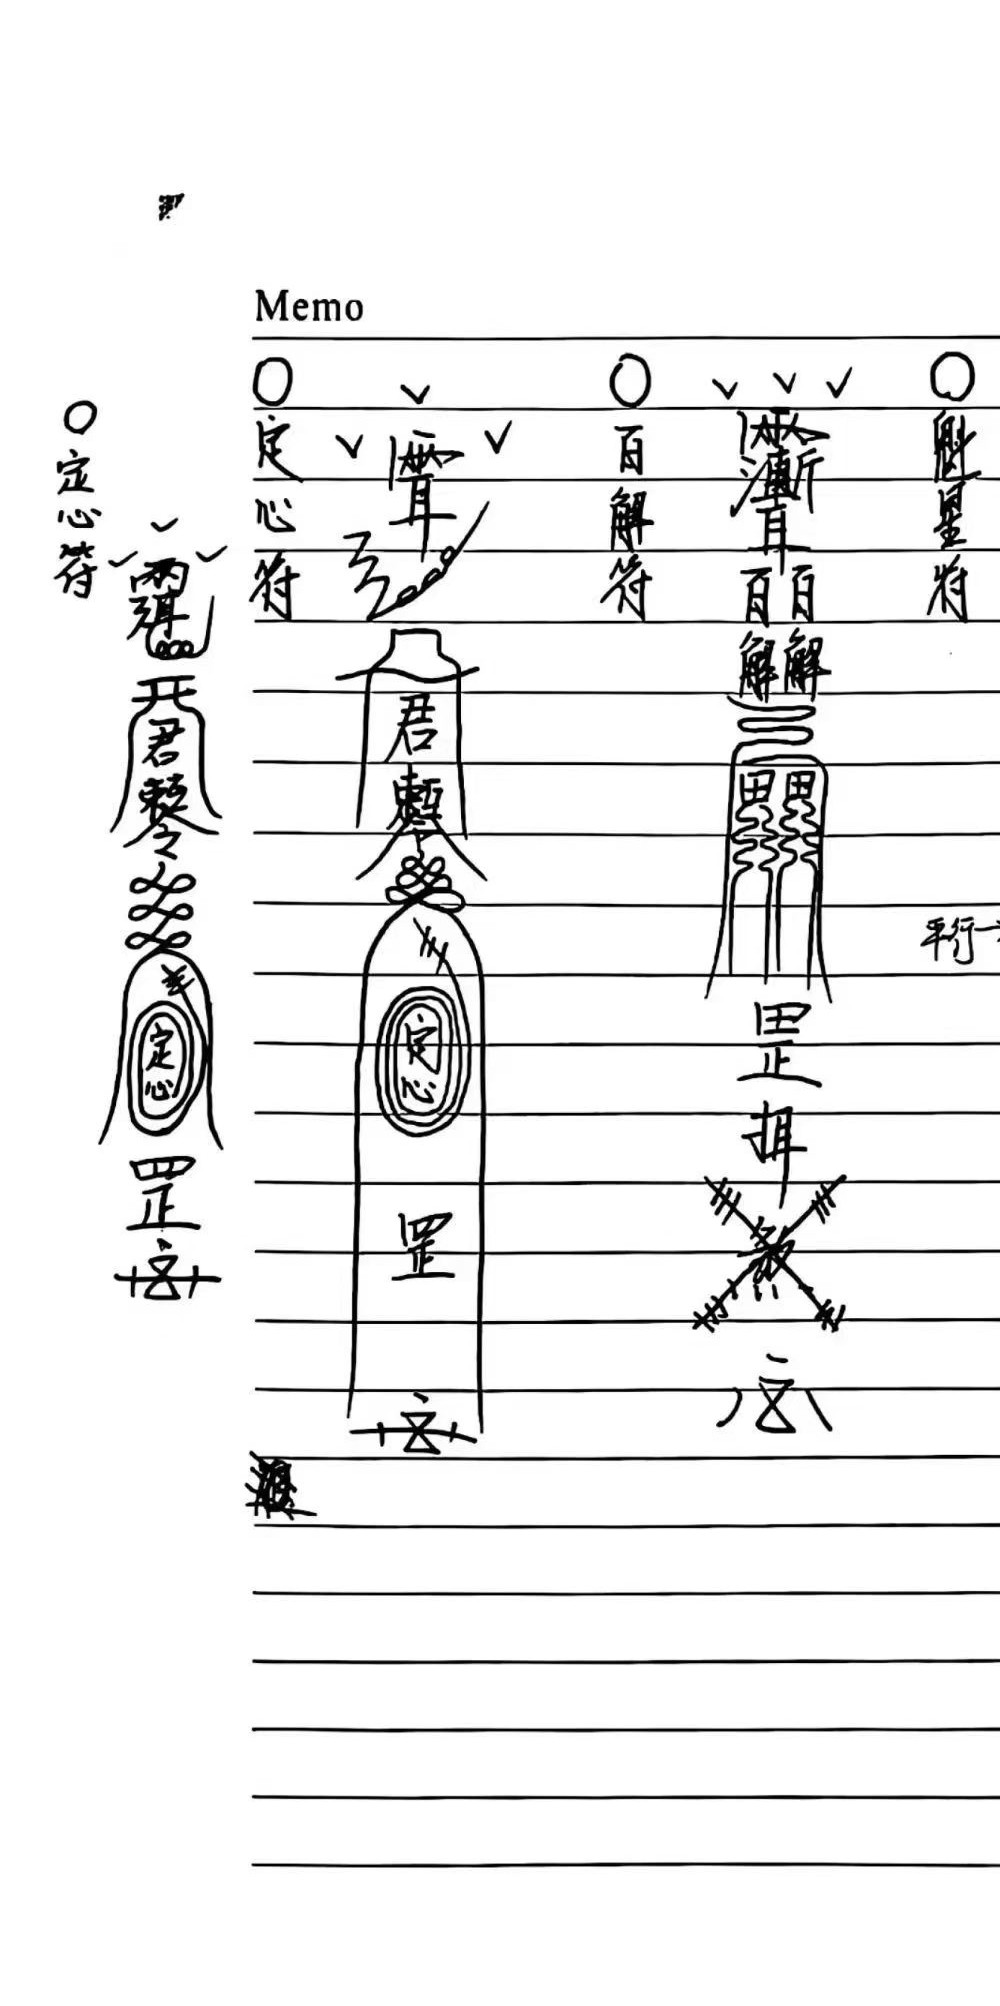 Memo
定心符
君
敕令
定心
罡
定心符
君
定心
罡
百解符
百百
解解
罡
煞
魁星符
平行